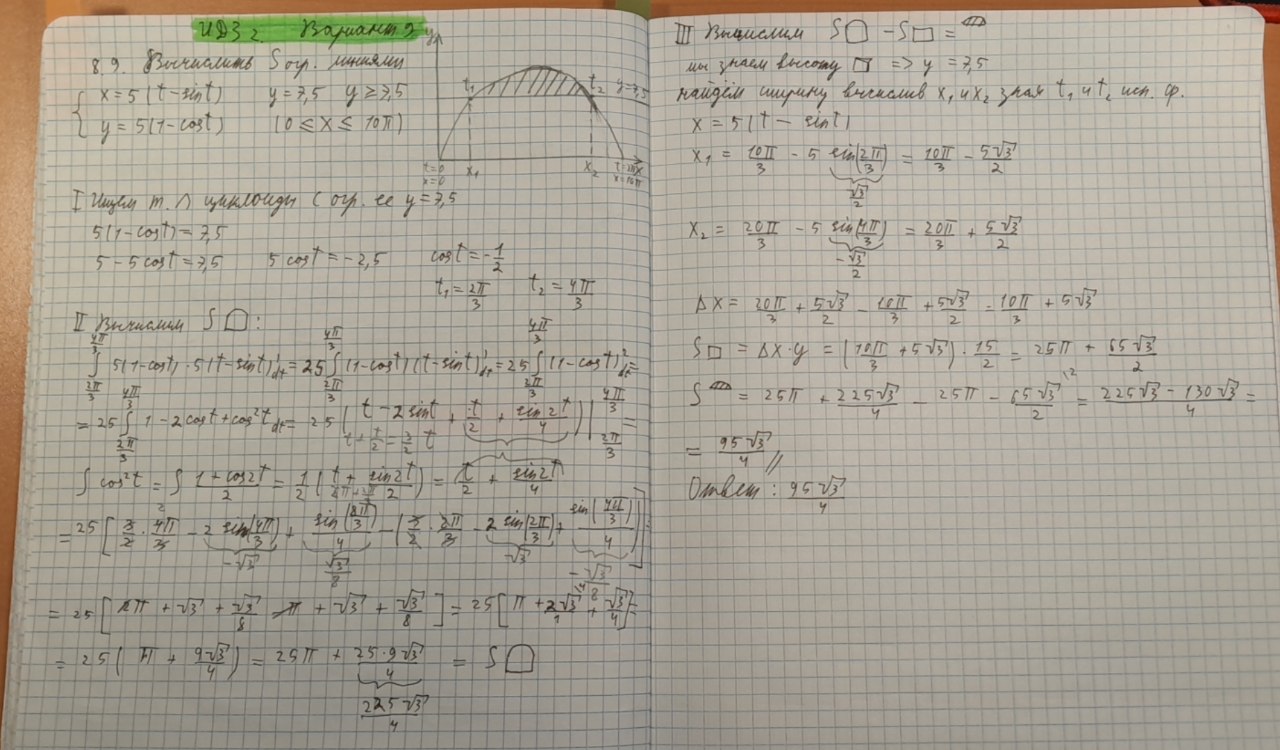 ИДЗ 2. Вариант 9
8.9. Вычислить S огр. линиями
{ x = 5(t - sin t)   y = 7,5   y ≥ 7,5
{ y = 5(1 - cos t)   (0 ≤ x ≤ 10π)
y
t₁ t₂ y = 7,5
t=0 x=0 x₁ x₂ t=2π x=10π x
I Ищем т. ∩ циклоиды с огр. ее y = 7,5
5(1 - cos t) = 7,5
5 - 5cos t = 7,5   5 cos t = -2,5   cos t = -1/2
t₁ = 2π/3   t₂ = 4π/3
II Вычислим S⌓:
∫_{2π/3}^{4π/3} 5(1-cos t)·5(t-sin t)'dt = 25∫_{2π/3}^{4π/3} (1-cos t)(t-sin t)'dt = 25∫_{2π/3}^{4π/3} (1-cos t)²dt =
= 25∫_{2π/3}^{4π/3} 1 - 2cos t + cos²t dt = 25 (t - 2sin t + t/2 + sin2t/4)|_{2π/3}^{4π/3} =
t + t/2 = 3/2 t
∫cos²t = ∫ (1+cos2t)/2 = 1/2 (t + sin2t/2) = t/2 + sin2t/4
= 25[3/2 · 4π/3 - 2 sin(4π/3) + sin(8π/3)/4 - (3/2 · 2π/3 - 2 sin(2π/3) + sin(4π/3)/4)] =
-√3   √3/8   √3   -√3/8
= 25[2π + √3 + √3/8 - π + √3 + √3/8] = 25[π + 2√3/1 + √3/4] =
= 25(π + 9√3/4) = 25π + 25·9√3/4 = S⌓
225√3/4
III Вычислим S⌓ - S□ =
мы знаем высоту □ => y = 7,5
найдём ширину вычислив x₁ и x₂ зная t₁ и t₂ исп. ф.
x = 5(t - sin t)
x₁ = 10π/3 - 5 sin(2π/3) = 10π/3 - 5√3/2
√3/2
x₂ = 20π/3 - 5 sin(4π/3) = 20π/3 + 5√3/2
-√3/2
Δx = 20π/3 + 5√3/2 - 10π/3 + 5√3/2 = 10π/3 + 5√3
S□ = Δx·y = (10π/3 + 5√3)·15/2 = 25π + 65√3/2
S = 25π + 225√3/4 - 25π - 65√3/2 = (225√3 - 130√3)/4 =
= 95√3/4 //
Ответ: 95√3/4